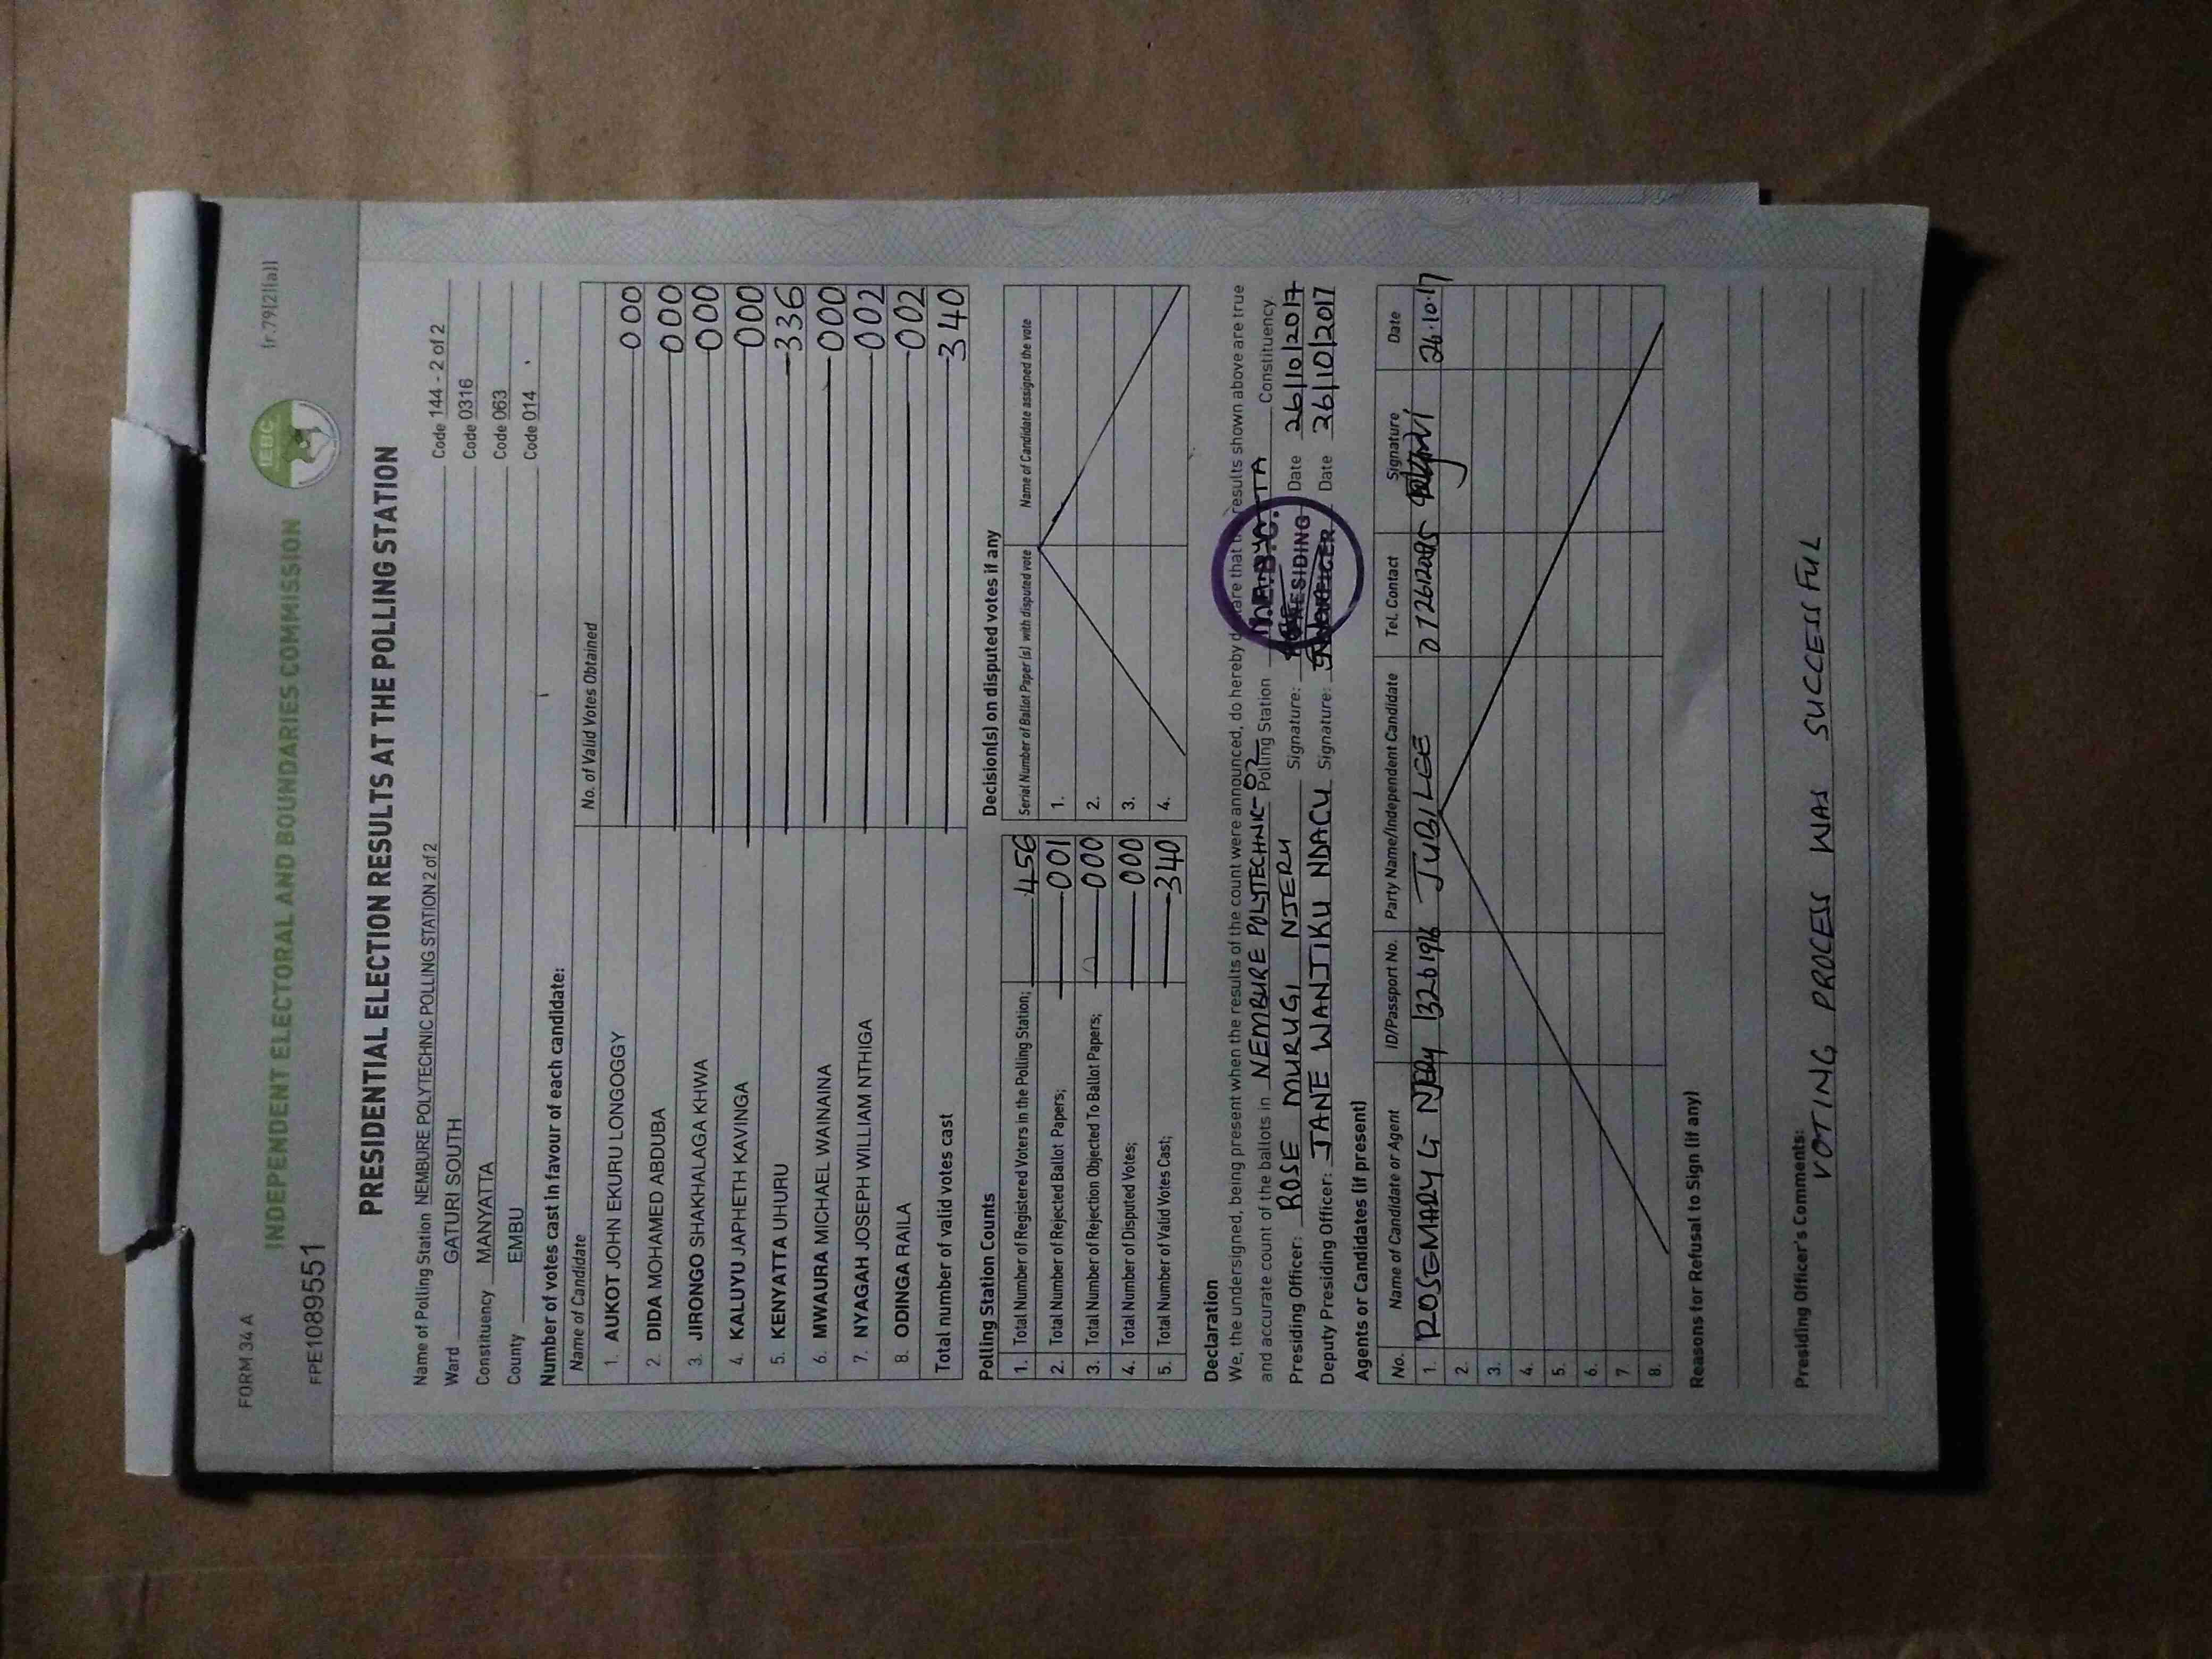 FORM 34 A
(r.79(2)(a))
INDEPENDENT ELECTORAL AND BOUNDARIES COMMISSION
IEBC
FPE1089551
PRESIDENTIAL ELECTION RESULTS AT THE POLLING STATION
Name of Polling Station NEMBURE POLYTECHNIC POLLING STATION 2 of 2 Code 144 - 2 of 2
Ward GATURI SOUTH Code 0316
Constituency MANYATTA Code 063
County EMBU Code 014
Number of votes cast in favour of each candidate:
Name of Candidate No. of Valid Votes Obtained
1. AUKOT JOHN EKURU LONGOGGY 000
2. DIDA MOHAMED ABDUBA 000
3. JIRONGO SHAKHALAGA KHWA 000
4. KALUYU JAPHETH KAVINGA 000
5. KENYATTA UHURU 336
6. MWAURA MICHAEL WAINAINA 000
7. NYAGAH JOSEPH WILLIAM NTHIGA 002
8. ODINGA RAILA 002
Total number of valid votes cast 340
Polling Station Counts
1. Total Number of Registered Voters in the Polling Station; 456
2. Total Number of Rejected Ballot Papers; 001
3. Total Number of Rejection Objected To Ballot Papers; 000
4. Total Number of Disputed Votes; 000
5. Total Number of Valid Votes Cast; 340
Decision(s) on disputed votes if any
Serial Number of Ballot Paper (s) with disputed vote Name of Candidate assigned the vote
1.
2.
3.
4.
Declaration
We, the undersigned, being present when the results of the count were announced, do hereby declare that the results shown above are true
and accurate count of the ballots in NEMBURE POLYTECHNIC-02 Polling Station MANYATTA Constituency.
Presiding Officer: ROSE MURUGI NJERU Signature: Date 26/10/2017
Deputy Presiding Officer: JANE WANJIKU NDACU Signature: Date 26/10/2017
I.E.B.C.
PRESIDING
OFFICER
Agents or Candidates (if present)
No. Name of Candidate or Agent ID/Passport No. Party Name/Independent Candidate Tel. Contact Signature Date
1. ROSEMARY G JUBILEE 26.10.17
2.
3.
4.
5.
6.
7.
8.
Reasons for Refusal to Sign (if any)
Presiding Officer's Comments:
VOTING PROCESS WAS SUCCESSFUL